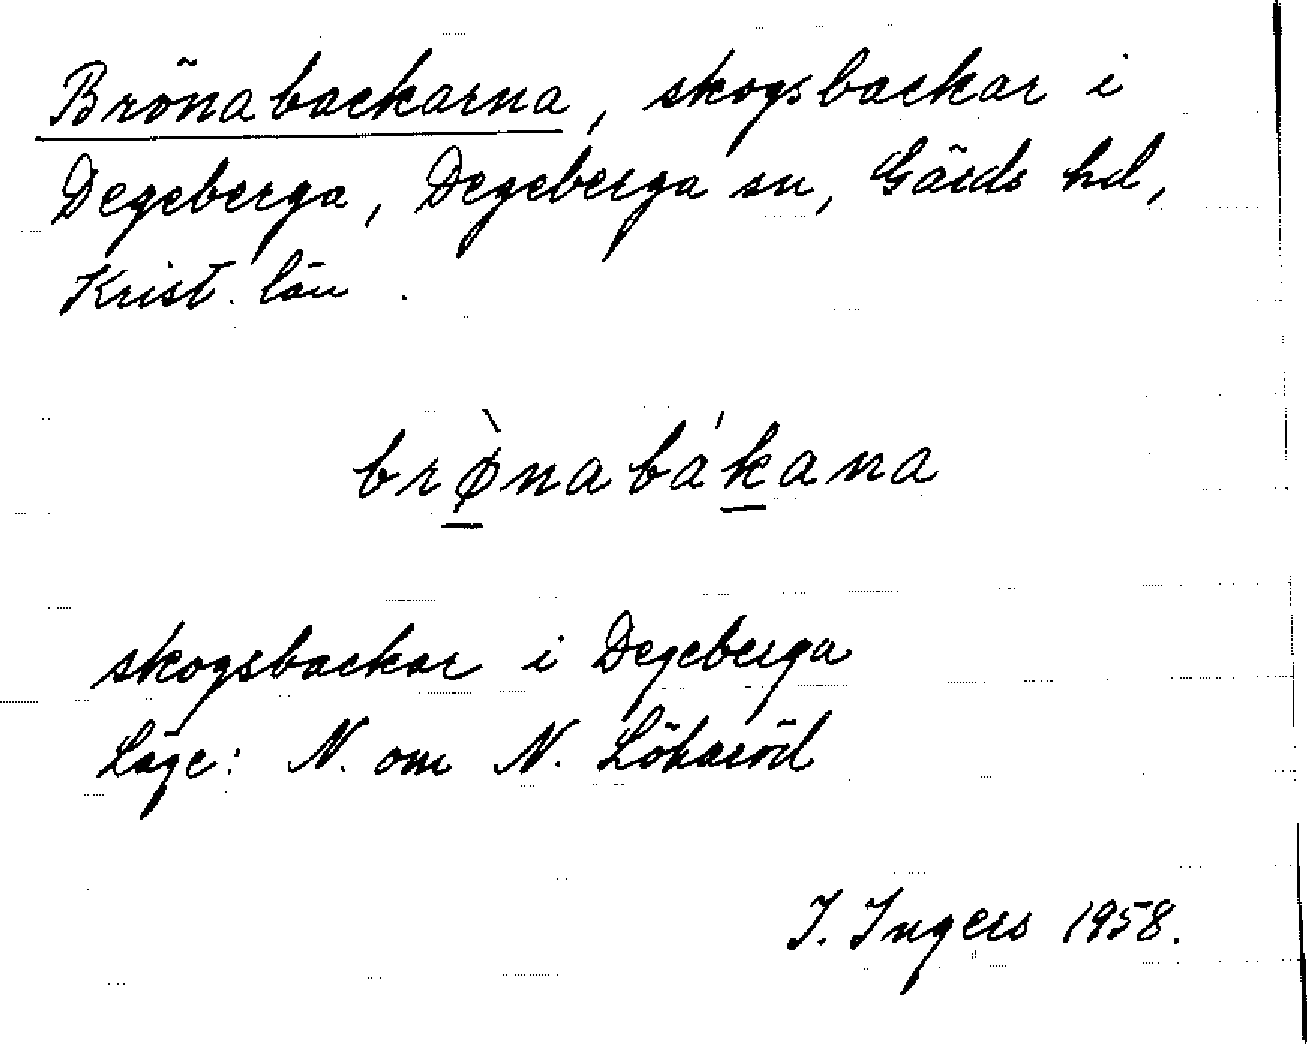 Brönabackarna, skogsbackar i
Degeberga, Degeberga sn, Gärds hd,
Krist. län.
brø̀nabákana
skogsbackar i Degeberga
Läge: N. om N. Lökaröd
I. Ingers 1958.